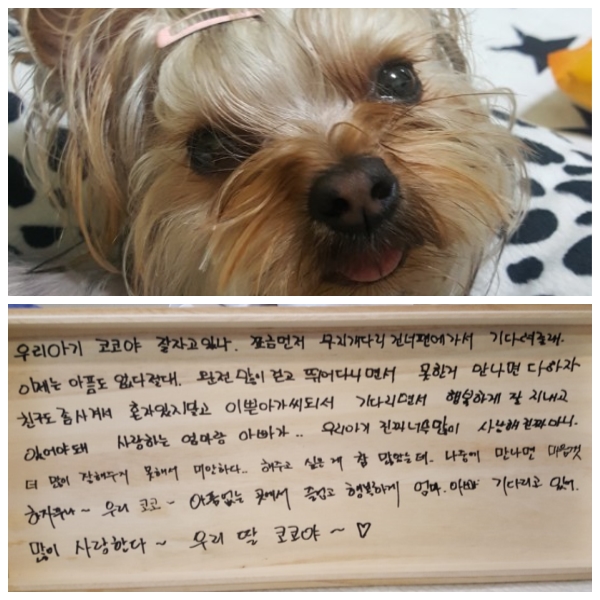 우리아기 코코야 잘자고있나. 쪼금먼저 무지개다리 건너편에가서 기다려줄래.
이제는 아픔도 없다절대. 완전 많이 걷고 뛰어다니면서 못한거 만나면 다하자
친구도 좀사겨서 혼자있지말고 이쁜아가씨되서 기다리면서 행복하게 잘 지내고
있어야돼 사랑하는 엄마랑 아빠가.. 우리아기 진짜너무많이 사랑해진짜아니.
더 많이 잘해주지 못해서 미안하다.. 해주고 싶은게 참 많았는데. 나중에 만나면 마음껏
하자꾸나~ 우리 코코~ 아픔없는 곳에서 즐겁고 행복하게 엄마.아빠 기다리고 있어.
많이 사랑한다~ 우리 딸 코코야~ ♡